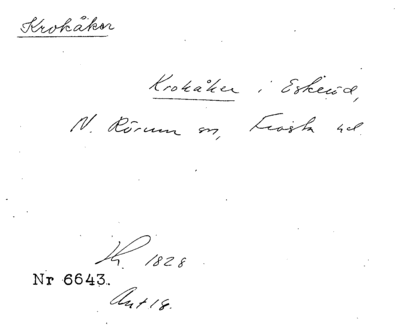 Krokåker
Krokåker i Eskeröd,
N. Rörum sn, Frosta hd.
1828
Nr 6643.
Ant 18.